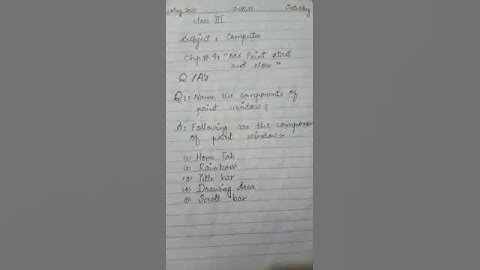 May 2020 Saturday
Class III
Subject : Computer
Chp # 4: "Ms Paint start
and close"
Q/A's
Q1: Name the components of
paint window?
A: Following are the component
of paint window:
Home Tab
Rainbow
Title bar
Drawing Area
Scroll bar